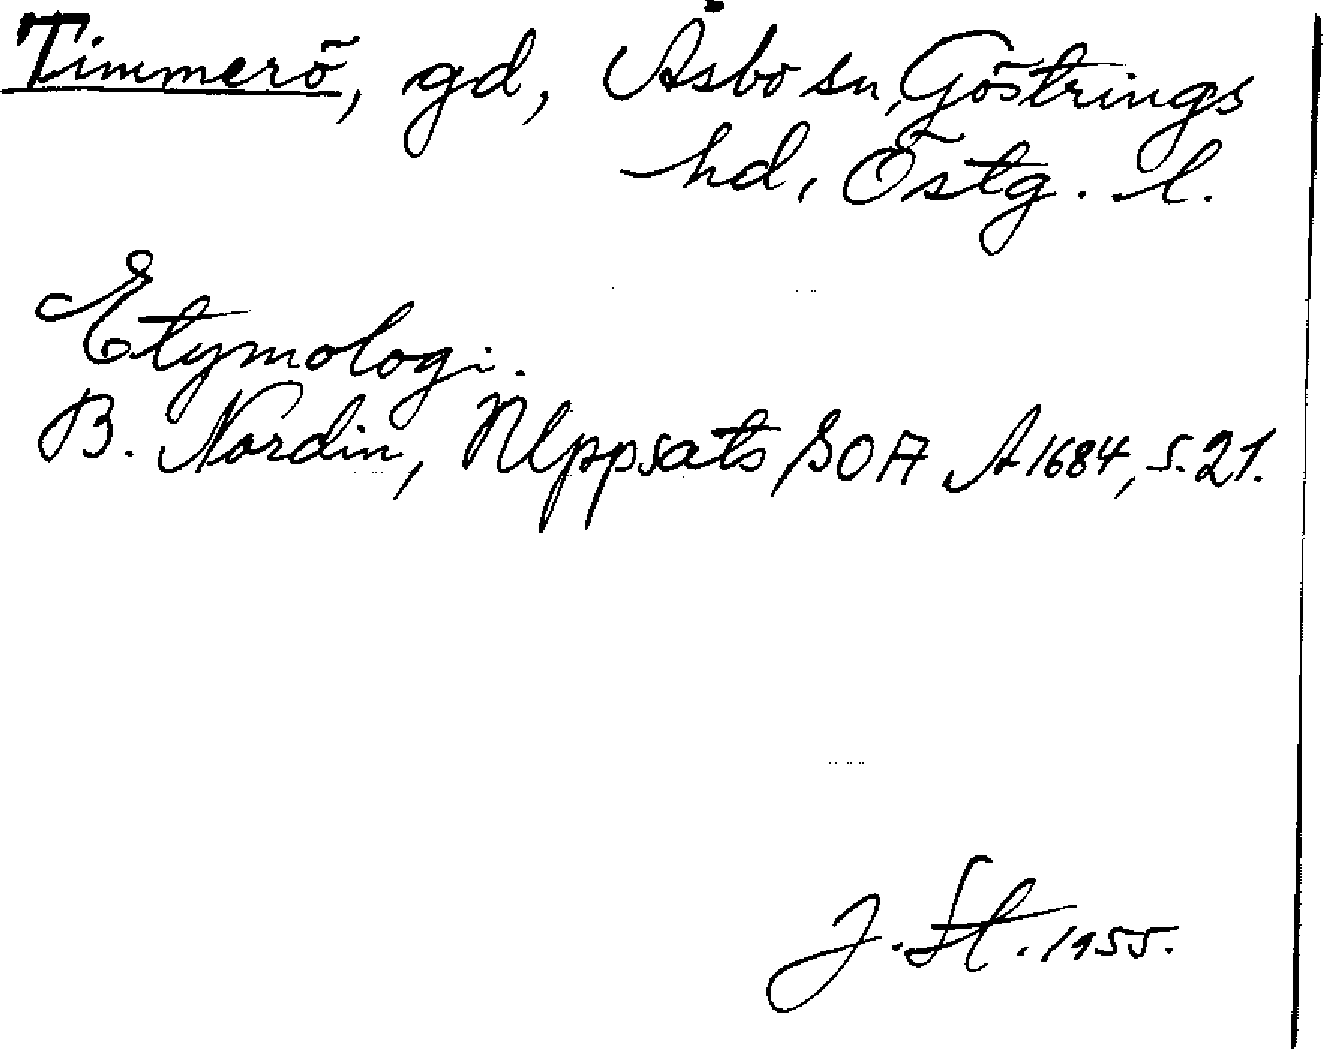 Timmerö, gd, Åsbo sn, Göstrings
hd, Östg. l.
Etymologi.
B. Nordin, Uppsats, SOA A 1684, s. 21.
J. St. 1955.